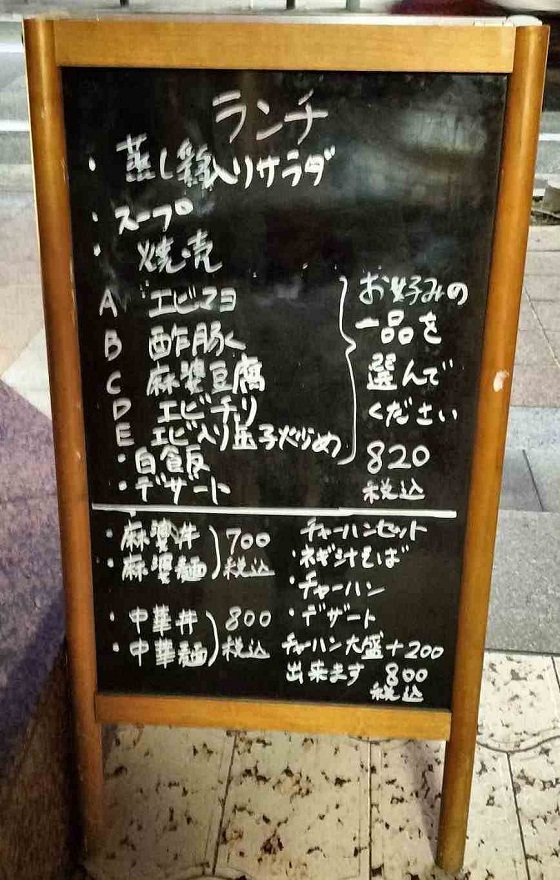 ランチ
・蒸し鶏入りサラダ
・スープ
・焼売
A エビマヨ
B 酢豚
C 麻婆豆腐
D エビチリ
E エビ入り玉子炒め
お好みの
一品を
選んで
ください
820
税込
・白飯
・デザート
・麻婆丼
・麻婆麺
700
税込
・中華丼
・中華麺
800
税込
チャーハンセット
・ネギ汁そば
・チャーハン
・デザート
チャーハン大盛+200
出来ます 800
税込